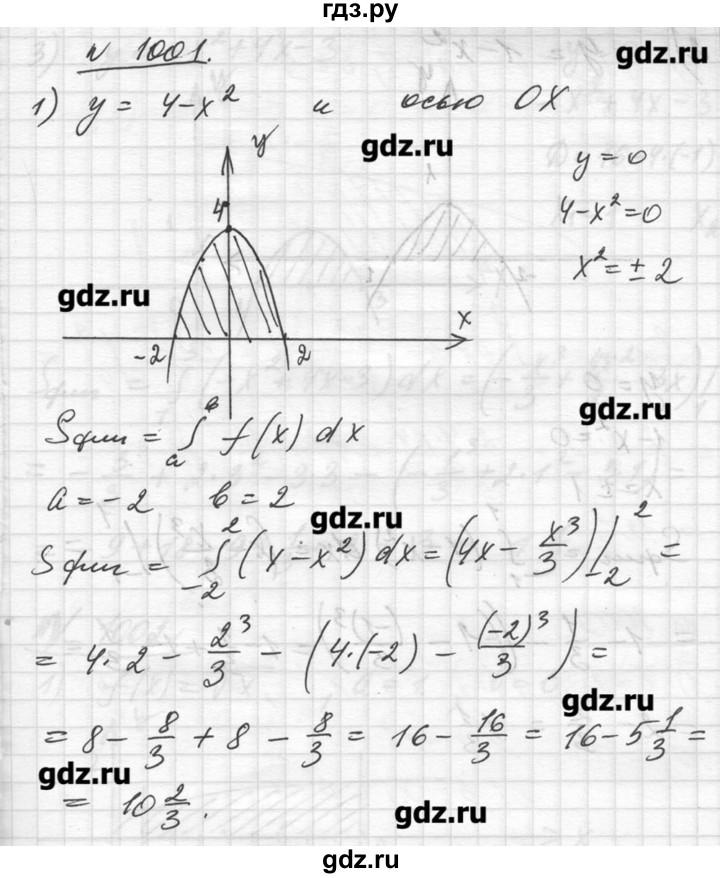 гдз.ру
N 1001.
gdz.ru
1) y = 4-x² и осью OX
gdz.ru
y
y = 0
4
4-x²=0
x²=±2
gdz.ru
x
-2 2
gdz.ru
Sфиг = ∫ₐᵇ f(x) dx
a = -2 b = 2
gdz.ru
Sфиг = ∫₋₂² (4-x²) dx = (4x - x³/3)|₋₂² =
= 4·2 - 2³/3 - (4·(-2) - (-2)³/3) =
gdz.ru
= 8 - 8/3 + 8 - 8/3 = 16 - 16/3 = 16 - 5 1/3 =
gdz.ru
= 10 2/3.
gdz.ru
gdz.ru